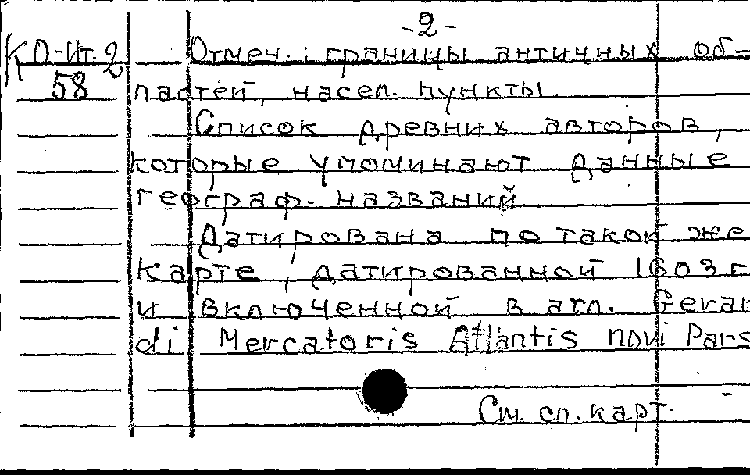 -2-
КО-ит.2 Отмеч.: границы античных об-
58 ластей, насел. пункты.
Список древних авторов,
которые упоминают данные
географ. названий.
Датирована по такой же
карте, датированной 1603 г.
и включенной в атл. Gerar
di Mercatoris Atlantis novi Pars
См. сп. карт.